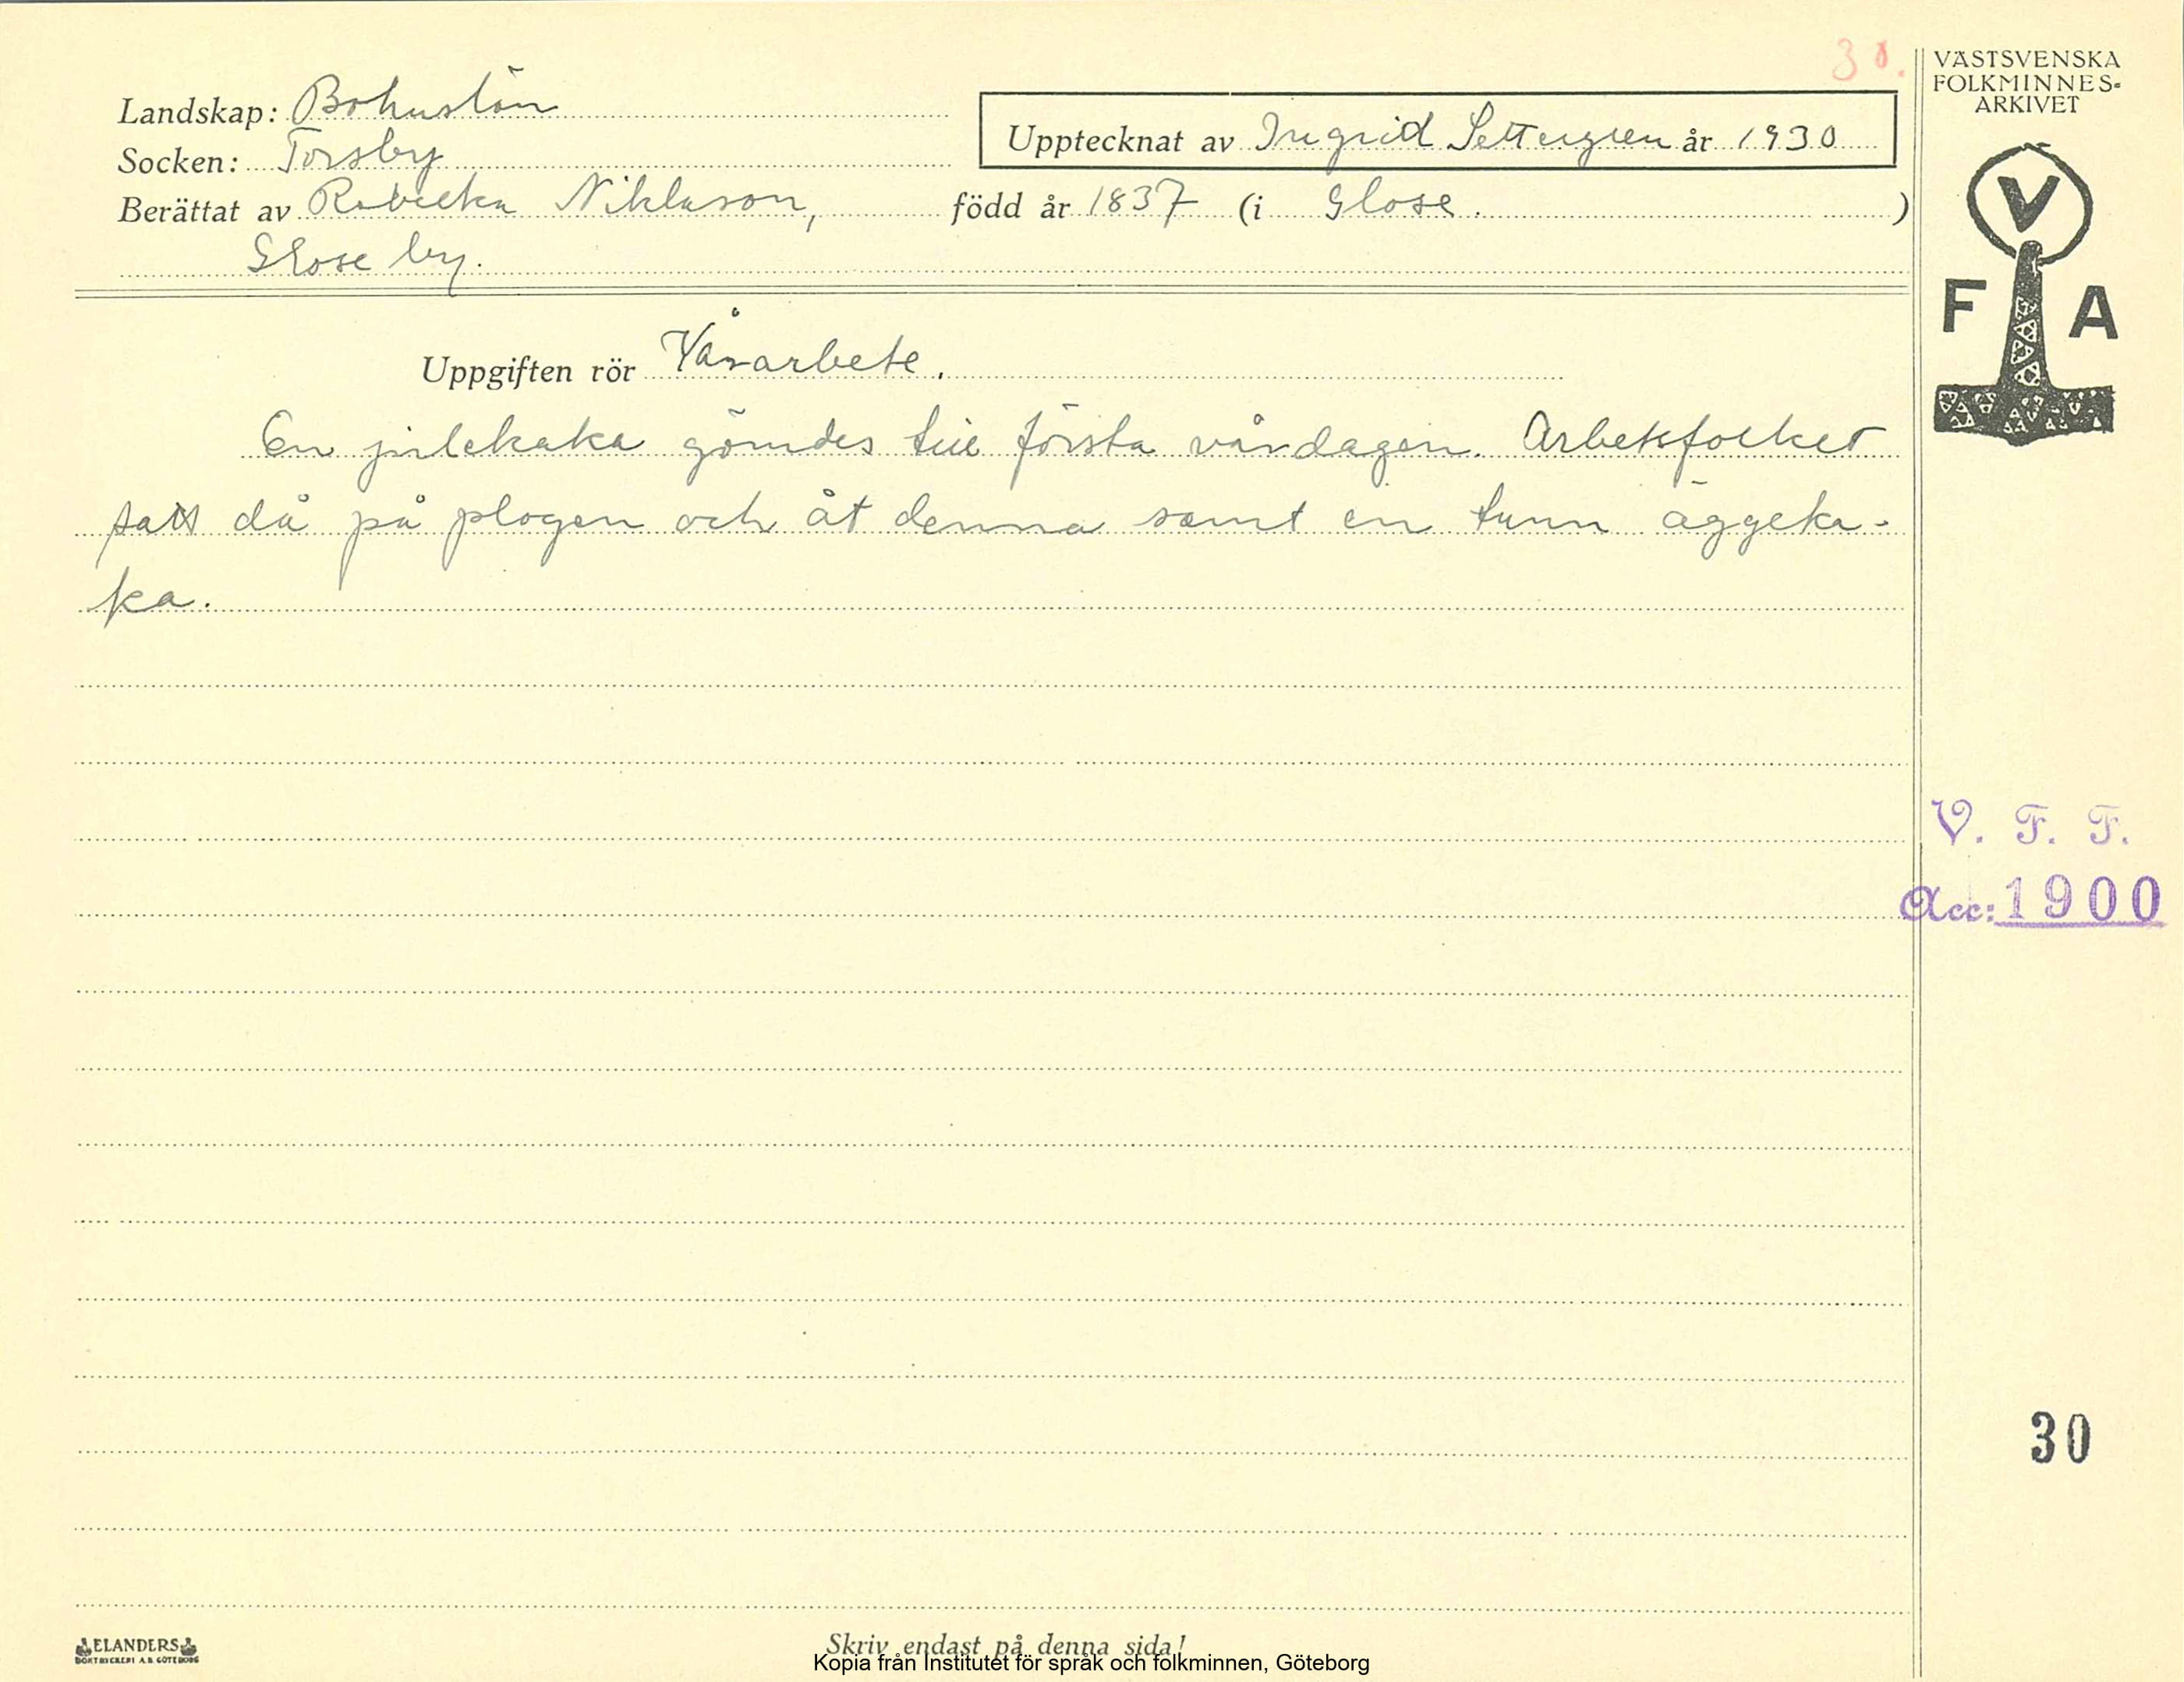 30.
VÄSTSVENSKA
FOLKMINNES-
ARKIVET
Landskap: Bohuslän
Upptecknat av Ingrid Settergren år 1930
Socken: Torsby
Berättat av Rebecka Niklason, född år 1837 (i Glose. )
Glose by.
V
F A
Uppgiften rör Vårarbete.
En julekaka gömdes till första vårdagen. Arbetsfolket
satt då på plogen och åt denna samt en tunn äggeka-
ka.
V. F. F.
Acc: 1900
30
ELANDERS
BOKTRYCKERI A.B. GÖTEBORG
Skriv endast på denna sida!
Kopia från Institutet för språk och folkminnen, Göteborg